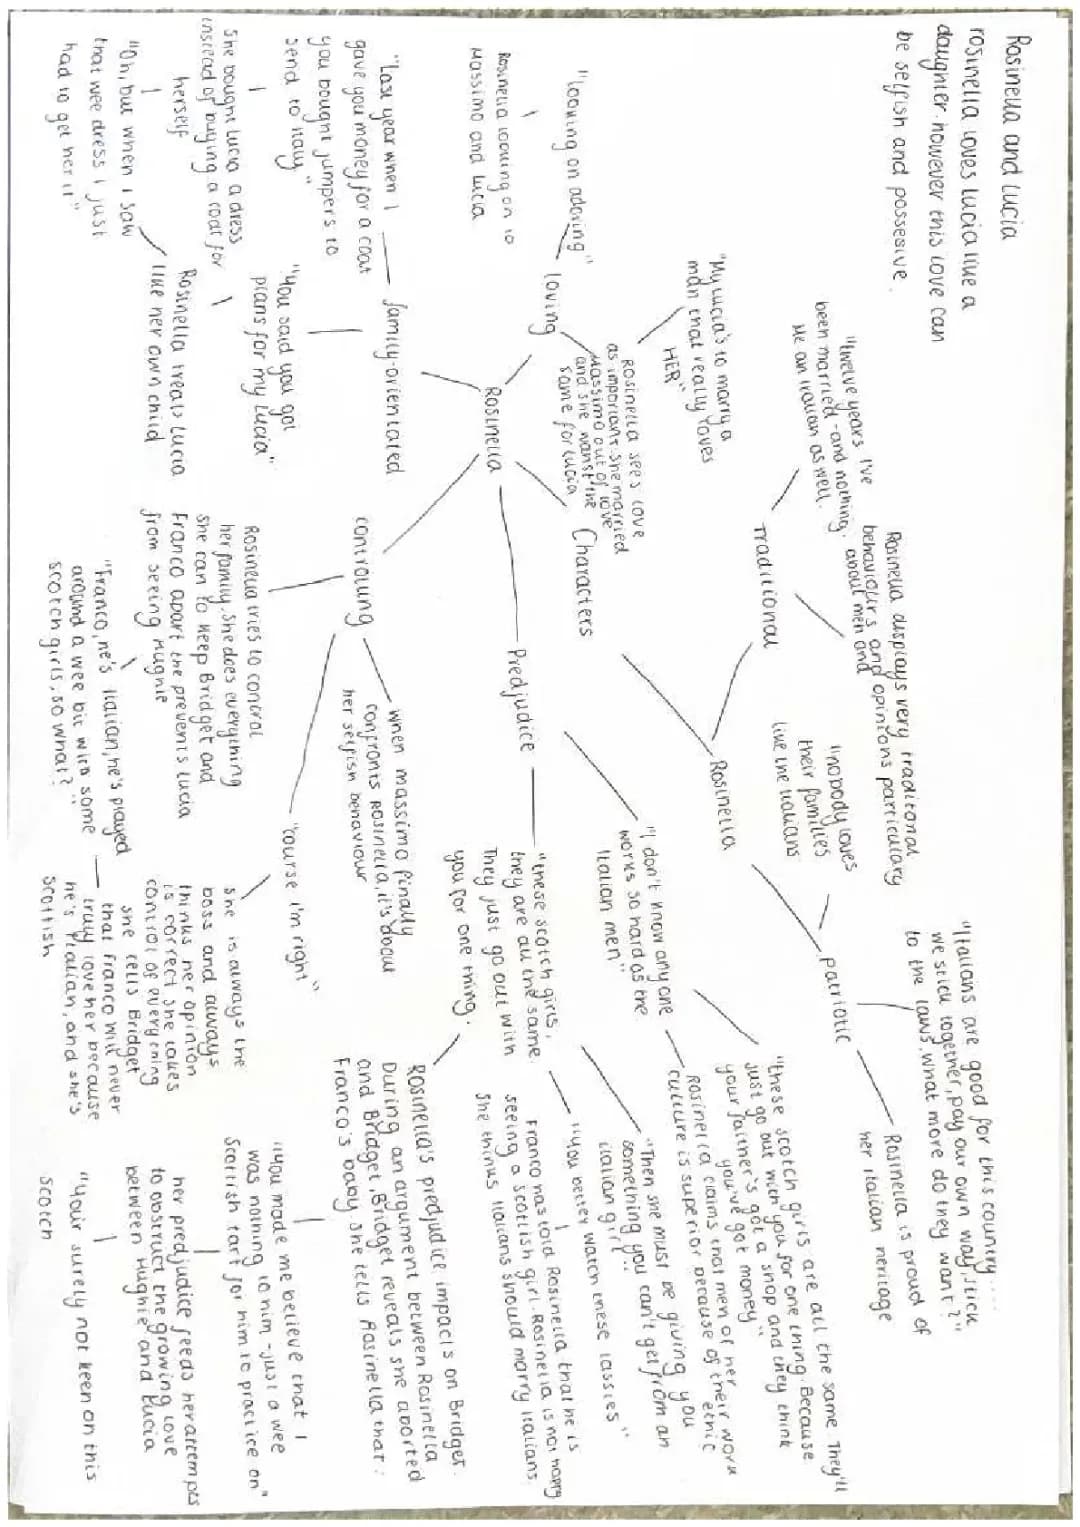 Rosinella and Lucia
rosinella loves lucia like a
daughter. however this love can
be selfish and possesive.
"twelve years I've
been married - and nothing.
Me an Italian as well.
Rosinella displays very traditonal
behaviours and opinions particulary
about men and
Traditional
"nobody loves
their families
like the Italians
"Italians are good for this country....
we stick together, pay our own way, stick
to the laws. what more do they want?"
patriotic
Rosinella is proud of
her italian heritage
Rosinella
"My Lucia's to marry a
man that really loves
HER"
Rosinella sees love
as important. she married
Massimo out of love
and she wanst the
same for Lucia
Characters
"looking on adoring"
Rosinella looking on to
Massimo and Lucia
loving
Rosinella
"I don't know any one
works so hard as the
Italian men"
"these scotch girls are all the same. They'll
just go out with you for one thing. Because
your faither's got a shop and they think
you've got money"
Rosinella claims that men of her work
culture is superior because of their ethic
Predjudice
"these scotch girls,
they are all the same.
They just go out with
you for one thing.
"Then she must be giving you
something you can't get from an
italian girl"
"you better watch these lassies"
Franco has told Rosinella that he is
seeing a scottish girl. Rosinella is not happy
She thinks Italians should marry Italians
Rosinella's predjudice impacts on Bridget.
During an argument between Rosinella
and Bridget, Bridget reveals she aborted
Franco's baby, she tells Rosinella that:
"you made me believe that I
was nothing to him - just a wee
Scottish tart for him to practice on"
her predjudice feeds her attempts
to obstruct the growing love
between Hughie and Lucia
"your surely not keen on this
Scotch
"Last year when I
gave you money for a coat
you bought jumpers to
send to Italy"
family-orientated
She bought Lucia a dress
instead of buying a coat for
herself
"Oh, but when I saw
that wee dress I just
had to get her it"
"You said you got
plans for my Lucia"
Rosinella treats Lucia
like her own child
controlling
when massimo finally
confronts Rosinella, it's about
her selfish behaviour
"course I'm right"
she is always the
boss and always
thinks her opinion
is correct she takes
control of everything
Rosinella tries to control
her family. She does everything
she can to keep Bridget and
Franco apart the prevents Lucia
from seeing Hughie
"Franco, he's Italian, he's played
around a wee bit with some
scotch girls, so what?"
she tells Bridget
that franco will never
truly love her because
he's Italian, and she's
scottish